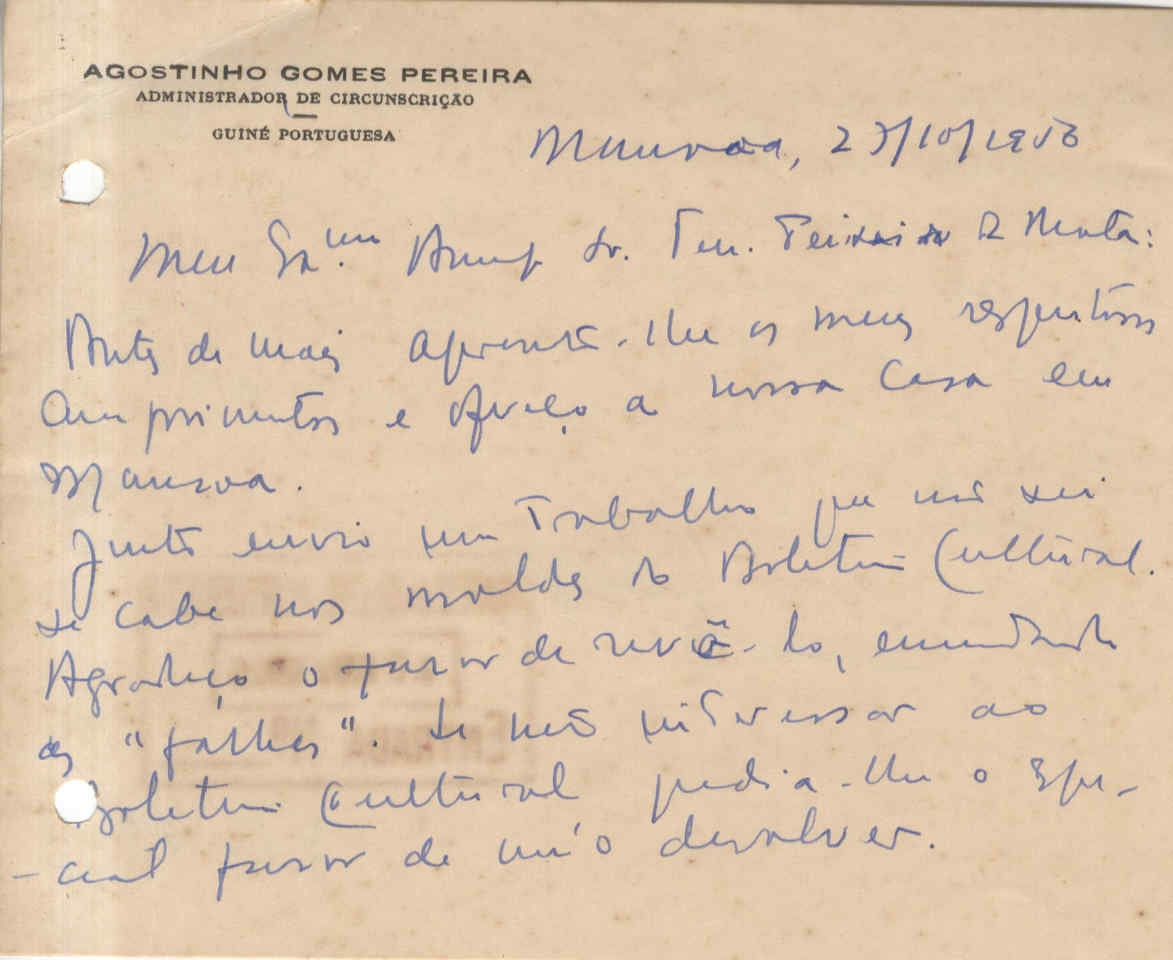 AGOSTINHO GOMES PEREIRA
ADMINISTRADOR DE CIRCUNSCRIÇÃO
GUINÉ PORTUGUESA
Mansoa, 23/10/1956
Meu Ex.mo Amigo Sr. Ten. Teixeira da Mota:
Antes de mais apresento-lhe os meus respeitosos
cumprimentos e ofereço a nossa casa em
Mansoa.
Junto envio um trabalho que não sei
se cabe nos moldes do Boletim Cultural.
Agradeço o favor de revê-lo, emendando
as "falhas". Se não interessar ao
Boletim Cultural pedia-lhe o espe-
-cial favor de m'o devolver.